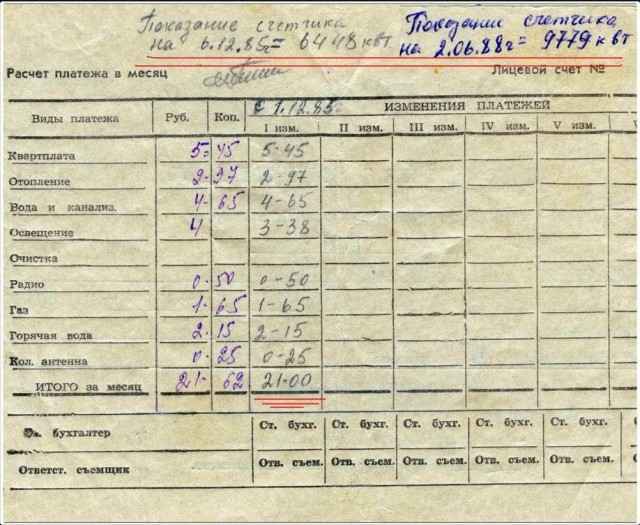 Показание счетчика
на 6.12.85г= 6448 квт
Показание счетчика
на 2.06.88г= 9779 квт
Расчет платежа в месяц
Лицевой счет №
Виды платежа Руб. Коп. С 1.12.85г ИЗМЕНЕНИЯ ПЛАТЕЖЕЙ
I изм. II изм. III изм. IV изм. V изм.
Квартплата 5- 45 5-45
Отопление 2- 97 2-97
Вода и канализ. 4- 65 4-65
Освещение 4 3-38
Очистка
Радио 0- 50 0-50
Газ 1- 65 1-65
Горячая вода 2- 15 2-15
Кол. антенна 0- 25 0-25
ИТОГО за месяц 21- 62 21-00
бухгалтер Ст. бухг. Ст. бухг. Ст. бухг. Ст. бухг. Ст. бухг. Ст.
Ответст. съемщик Отв. съем. Отв. съем. Отв. съем. Отв. съем. Отв. съем. Отв.